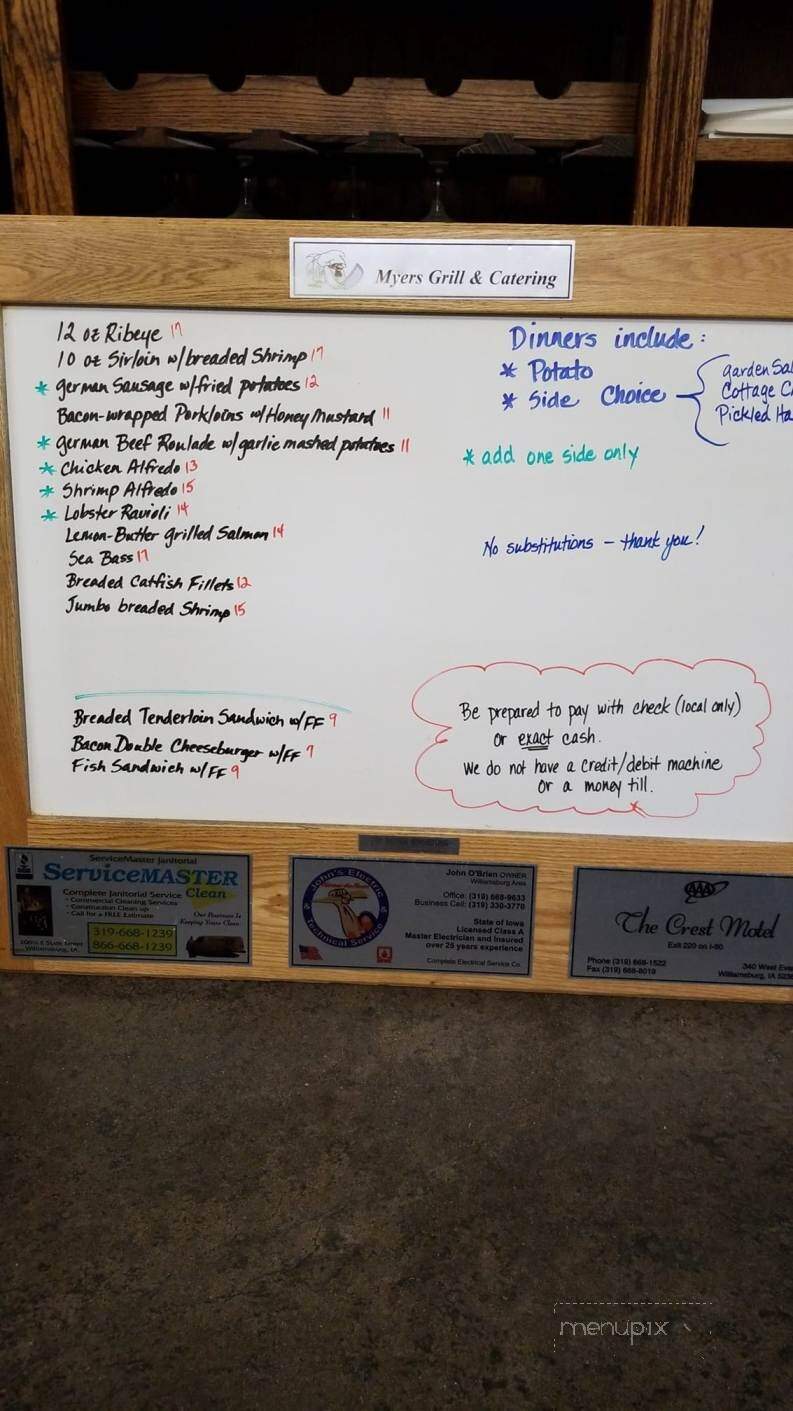 Myers Grill & Catering
12 oz Ribeye 17
10 oz Sirloin w/breaded Shrimp 17
* german Sausage w/fried potatoes 12
Bacon-wrapped Porkloins w/Honey Mustard 11
* german Beef Roulade w/garlic mashed potatoes 11
* Chicken Alfredo 13
* Shrimp Alfredo 15
* Lobster Ravioli 14
Lemon-Butter grilled Salmon 14
Sea Bass 17
Breaded Catfish Fillets 12
Jumbo breaded Shrimp 15
Breaded Tenderloin Sandwich w/FF 9
Bacon Double Cheeseburger w/FF 9
Fish Sandwich w/FF 9
Dinners include:
* Potato
* Side Choice
garden Sal
Cottage C
Pickled Ha
* add one side only
No substitutions - thank you!
Be prepared to pay with check (local only)
or exact cash.
We do not have a credit/debit machine
or a money till.
ServiceMaster Janitorial
ServiceMASTER
Clean
Complete Janitorial Service
• Commercial Cleaning Services
• Construction Clean up
• Call for a FREE Estimate
Our Business Is
Keeping Yours Clean
319-668-1239
866-668-1239
Williamsburg, IA
John's Electric
Technical Service
John O'Brien OWNER
Williamsburg Area
Office: (319) 668-9633
Business Cell: (319) 330-3770
State of Iowa
Licensed Class A
Master Electrician and Insured
over 25 years experience
Complete Electrical Service Co.
AAA
The Crest Motel
Exit 220 on I-80
Phone (319) 668-1522
Fax (319) 668-9019
340 West Eve
Williamsburg, IA 523
menupix